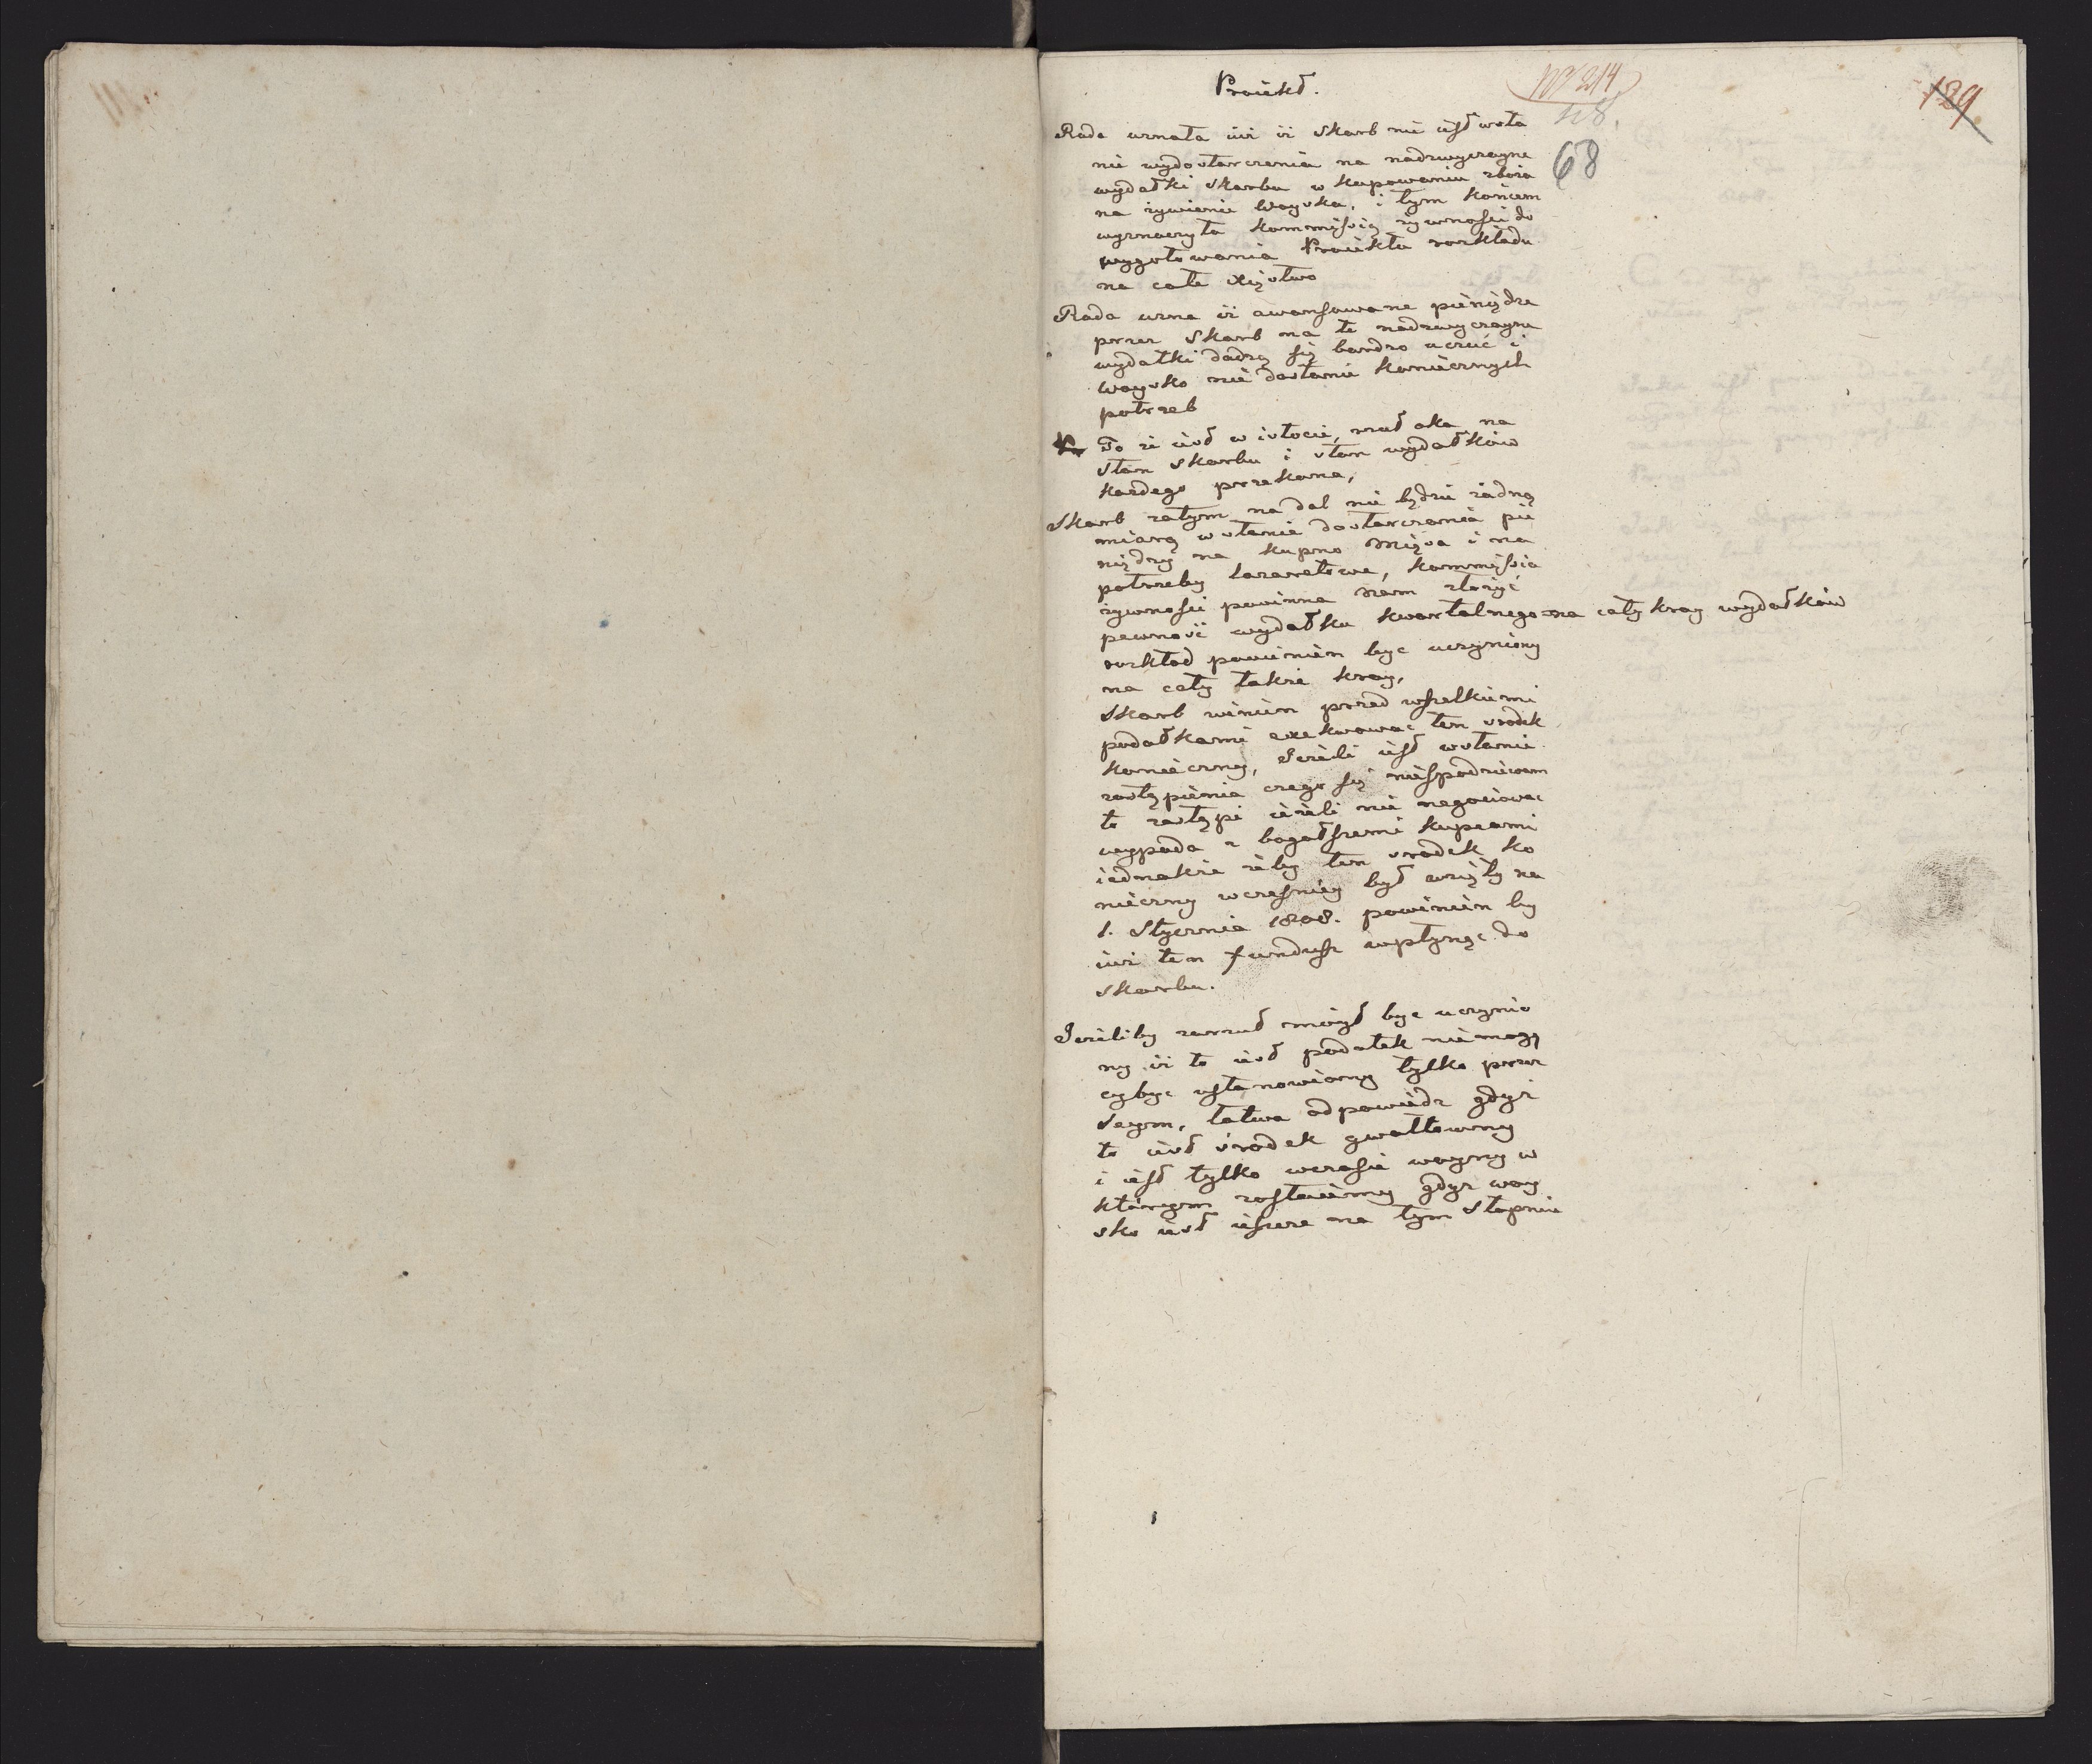 Proiekt.
N° 214
129
48.
68
Rada uznała iuż iż Skarb nie iest wsta
nie wydostarczenia na nadzwyczayne
wydatki Skarbu w kupowaniu zboża
na żywienie Woyska, i tym końcem
wyznaczyła Kommissią żywnosci do
wygotowania Proiektu rozkładu
na całe Xięstwo
Rada uzna iż awansowane pieniędze
przez Skarb na te nadzwyczayne
wydatki dadzą się bardzo uczuć i
Woysko nie dostanie koniecznych
potrzeb
To że iest w istocie, rzut oka na
stan Skarbu i stan wydatków
każdego przekona,
Skarb zatym na dal nie będzie żadną
miarą wstanie dostarczania pie
niędzy na kupno Mięsa i na
potrzeby lazaretowe, Kommissia
żywnosci powinna nam złożyć
pewność wydatku kwartalnego na cały kray wydatków
rozkład powinien byc uczyniony
na cały także kray,
Skarb winien przed wszelkiemi
podatkami exekwować ten srodek
konieczny, Jeżeli iest wstanie
zastąpienia czego się niespodziewam
to zastąpi ieżeli nie negociować
wypada z bogatszemi kupcami
iednakże żeby ten srodek ko
nieczny wcześniey był wzięty na
1. Stycznia 1808. powinien by
iuż ten fundusz wpłynąć do
skarbu.
Jeżeliby zarzut mógł być uczynio
ny iż to iest podatek niemogą
cy byc ustanowiony tylko przez
Seym, łatwa odpowiedz gdyż
to iest środek gwałtowny
i iest tylko wczasie woyny w
którym zostaiemy gdyż woy
sko iest ieszcze na tym Stopniu